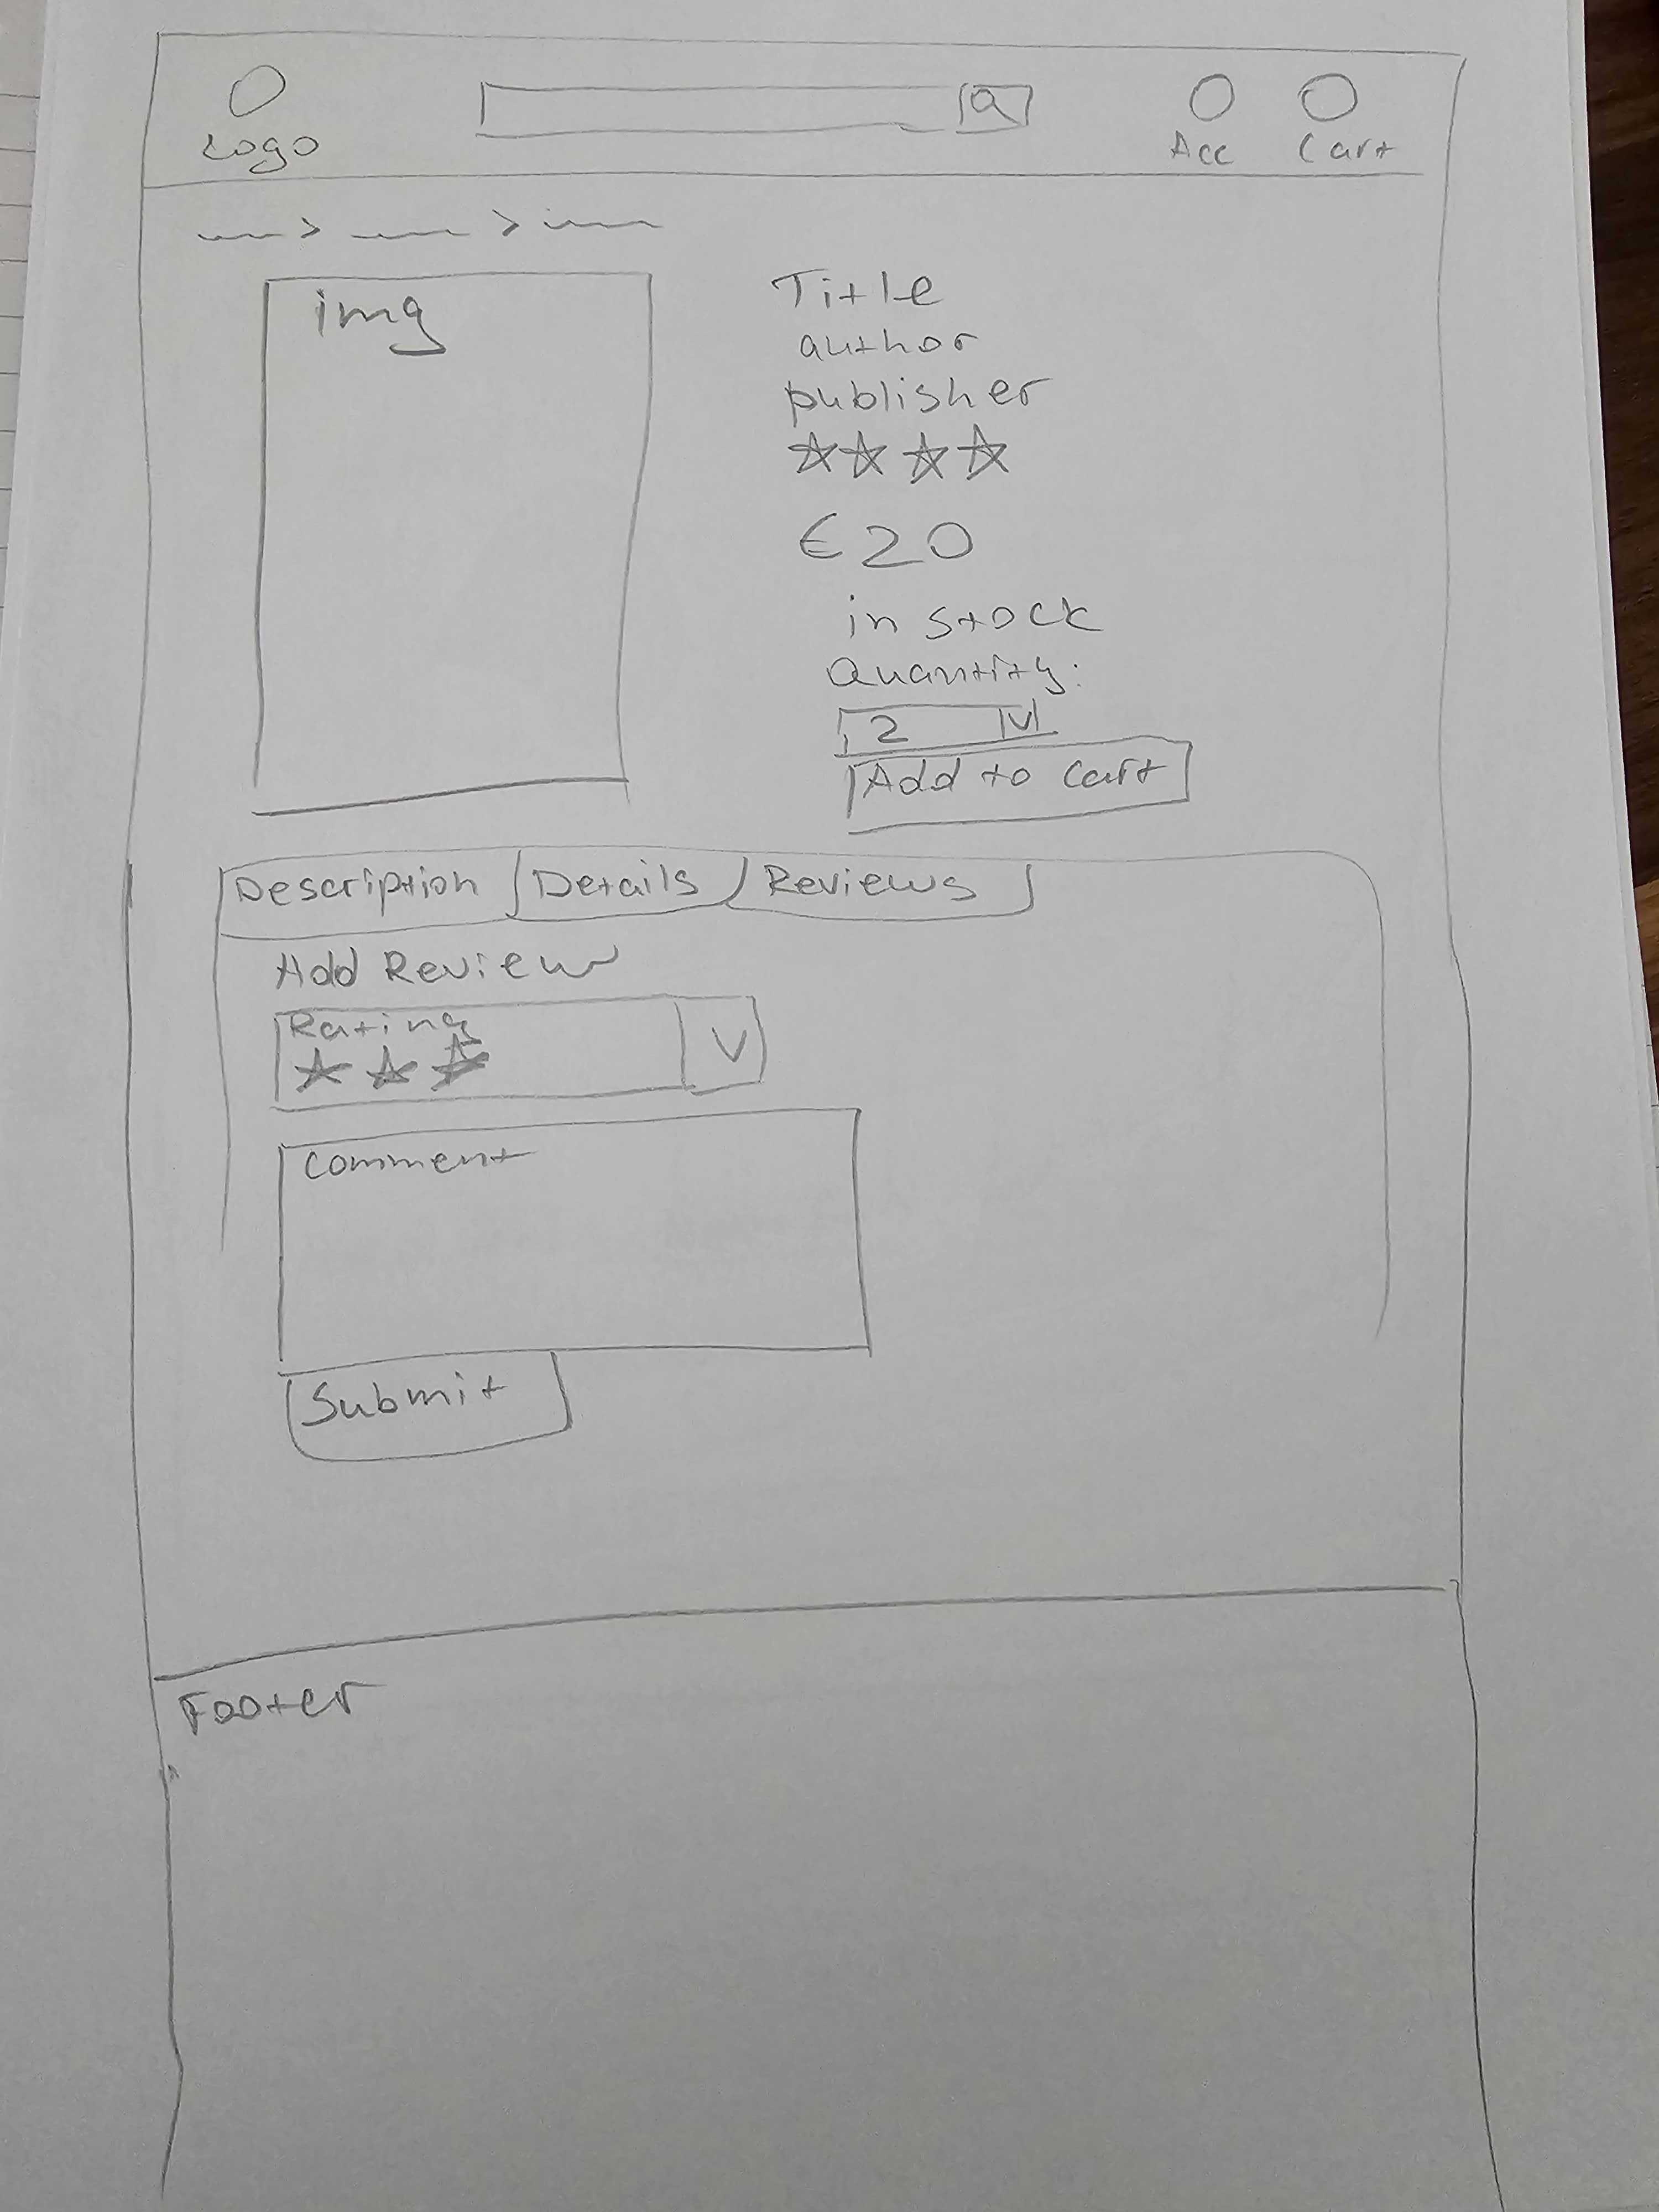 Logo
Acc Cart
> >
img
Title
author
publisher
€20
in stock
Quantity:
2 V
Add to Cart
Description Details Reviews
Add Review
Rating
V
Comment
Submit
Footer